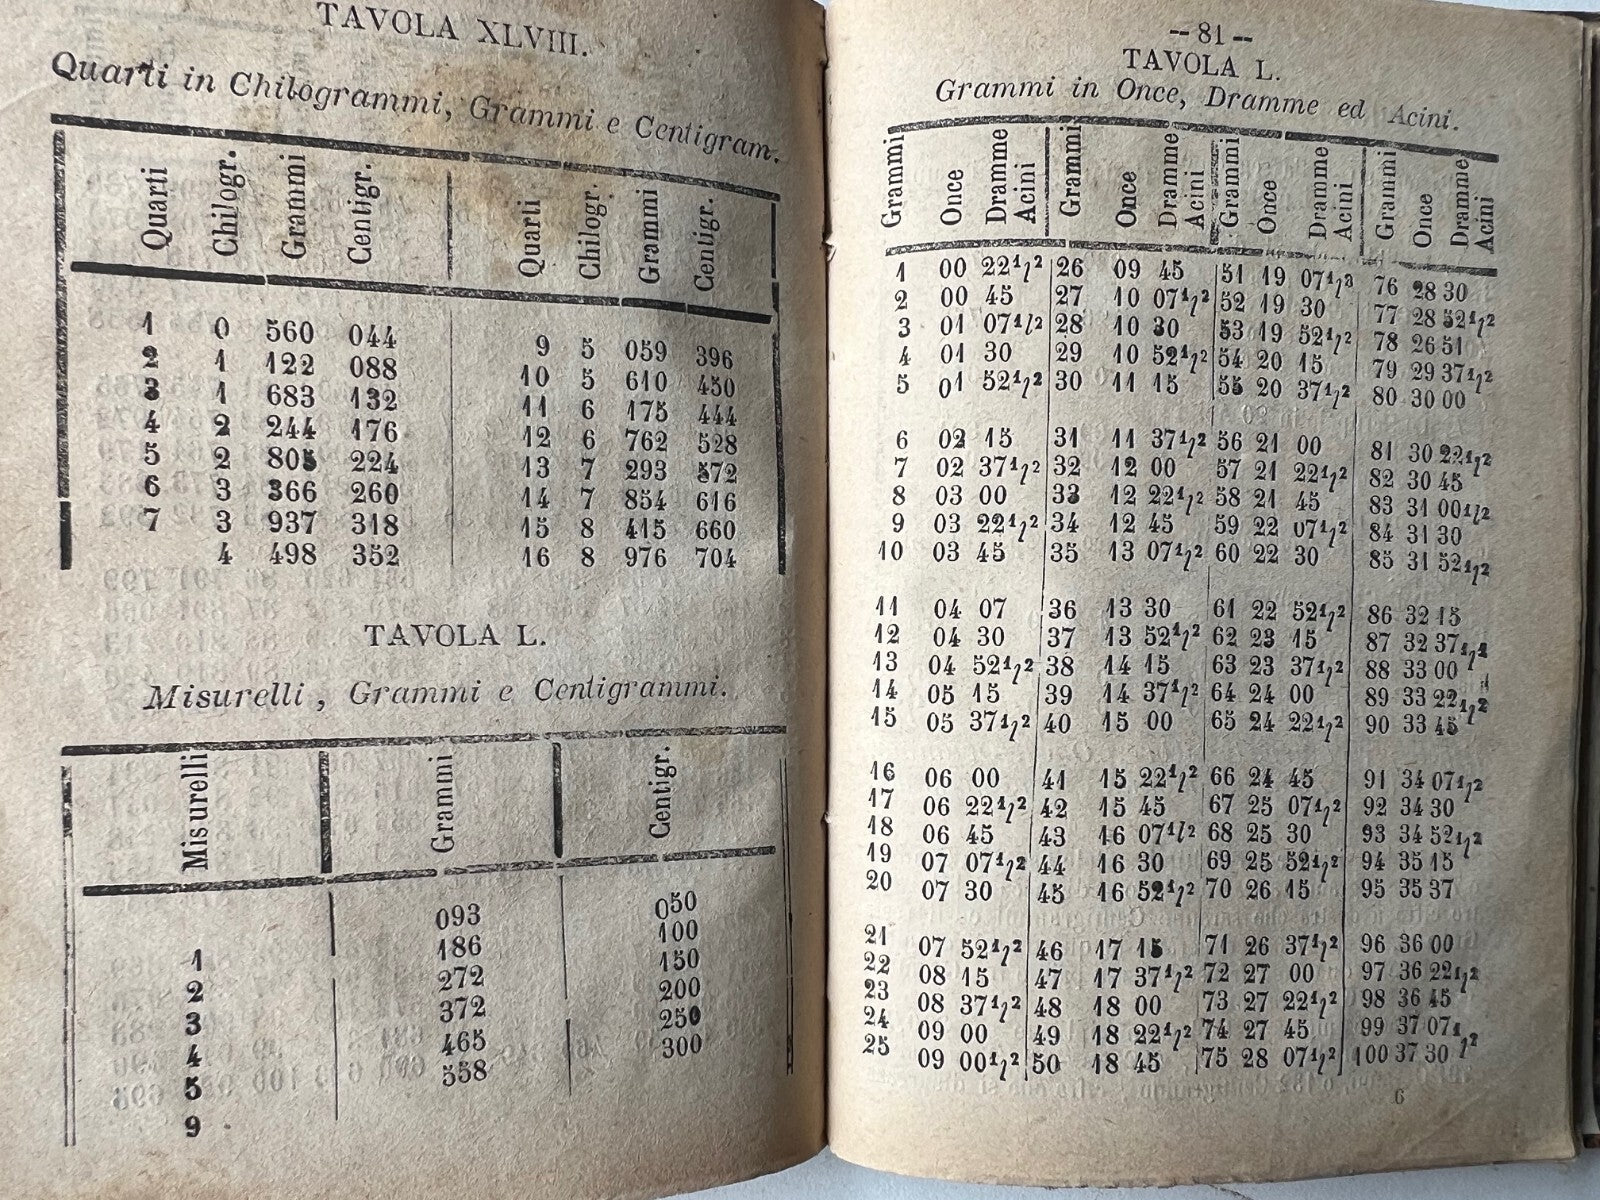 TAVOLA XLVIII.
Quarti in Chilogrammi, Grammi e Centigram.
Quarti Chilogr. Grammi Centigr. Quarti Chilogr. Grammi Centigr.
1 0 560 044 9 5 059 396
2 1 122 088 10 5 610 450
3 1 683 132 11 6 175 444
4 2 244 176 12 6 762 528
5 2 805 224 13 7 293 572
6 3 366 260 14 7 854 616
7 3 937 318 15 8 415 660
4 498 352 16 8 976 704
TAVOLA L.
Misurelli, Grammi e Centigrammi.
Misurelli Grammi Centigr.
093 050
1 186 100
2 272 150
3 372 200
4 465 250
5 558 300
9
—81—
TAVOLA L.
Grammi in Once, Dramme ed Acini.
Grammi Once Dramme Acini Grammi Once Dramme Acini Grammi Once Dramme Acini Grammi Once Dramme Acini
1 00 22 1/2 26 09 45 51 19 07 1/2 76 28 30
2 00 45 27 10 07 1/2 52 19 30 77 28 52 1/2
3 01 07 1/2 28 10 30 53 19 52 1/2 78 26 51
4 01 30 29 10 52 1/2 54 20 15 79 29 37 1/2
5 01 52 1/2 30 11 15 55 20 37 1/2 80 30 00
6 02 15 31 11 37 1/2 56 21 00 81 30 22 1/2
7 02 37 1/2 32 12 00 57 21 22 1/2 82 30 45
8 03 00 33 12 22 1/2 58 21 45 83 31 00 1/2
9 03 22 1/2 34 12 45 59 22 07 1/2 84 31 30
10 03 45 35 13 07 1/2 60 22 30 85 31 52 1/2
11 04 07 36 13 30 61 22 52 1/2 86 32 15
12 04 30 37 13 52 1/2 62 23 15 87 32 37 1/2
13 04 52 1/2 38 14 15 63 23 37 1/2 88 33 00
14 05 15 39 14 37 1/2 64 24 00 89 33 22 1/2
15 05 37 1/2 40 15 00 65 24 22 1/2 90 33 45
16 06 00 41 15 22 1/2 66 24 45 91 34 07 1/2
17 06 22 1/2 42 15 45 67 25 07 1/2 92 34 30
18 06 45 43 16 07 1/2 68 25 30 93 34 52 1/2
19 07 07 1/2 44 16 30 69 25 52 1/2 94 35 15
20 07 30 45 16 52 1/2 70 26 15 95 35 37
21 07 52 1/2 46 17 15 71 26 37 1/2 96 36 00
22 08 15 47 17 37 1/2 72 27 00 97 36 22 1/2
23 08 37 1/2 48 18 00 73 27 22 1/2 98 36 45
24 09 00 49 18 22 1/2 74 27 45 99 37 07 1/2
25 09 00 1/2 50 18 45 75 28 07 1/2 100 37 30
6